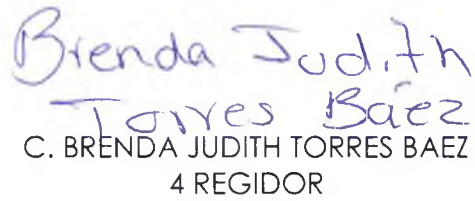 Brenda Judith
Torres Báez
C. BRENDA JUDITH TORRES BAEZ
4 REGIDOR